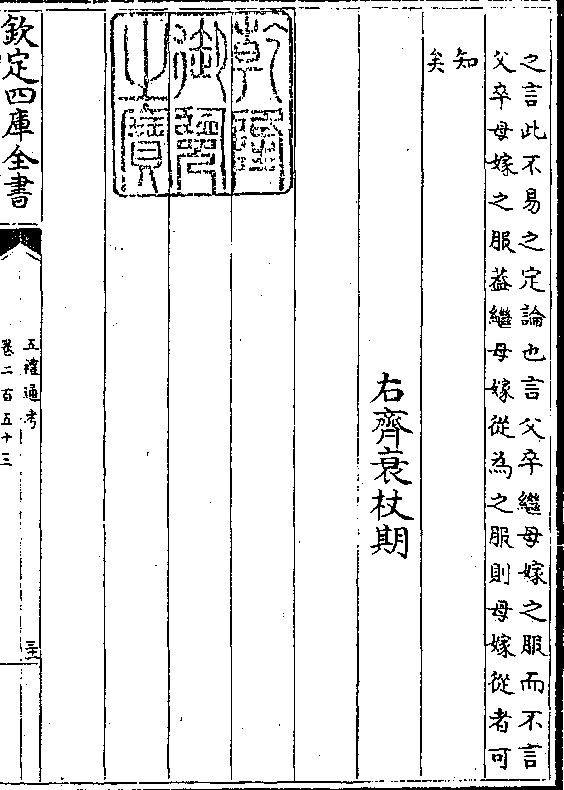 之言此不易之定論也言父卒繼母嫁之服而不言
父卒母嫁之服葢繼母嫁從為之服則母嫁從者可
知
矣
右齊衰杖期
乾隆
御覽
之寶
欽定四庫全書
五禮通考
卷二百五十三